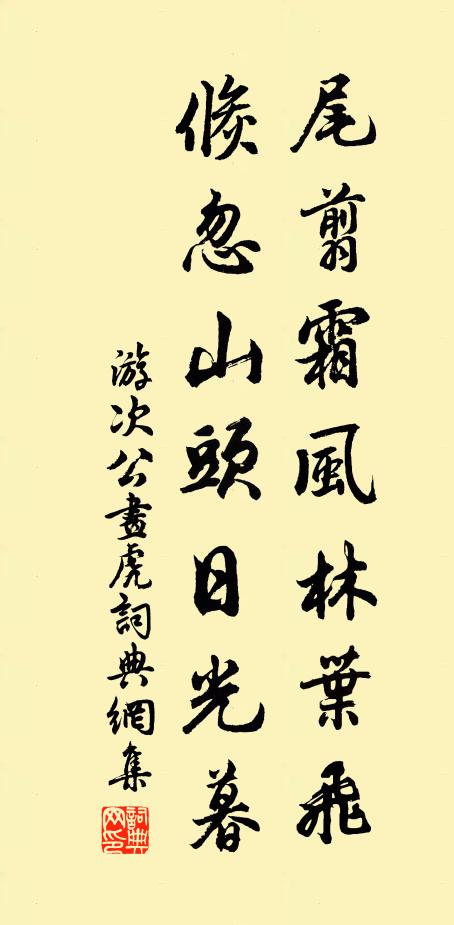 尾翦霜風林葉飛
倏忽山頭日光暮
游次公畫虎詞典網集
詞典網印